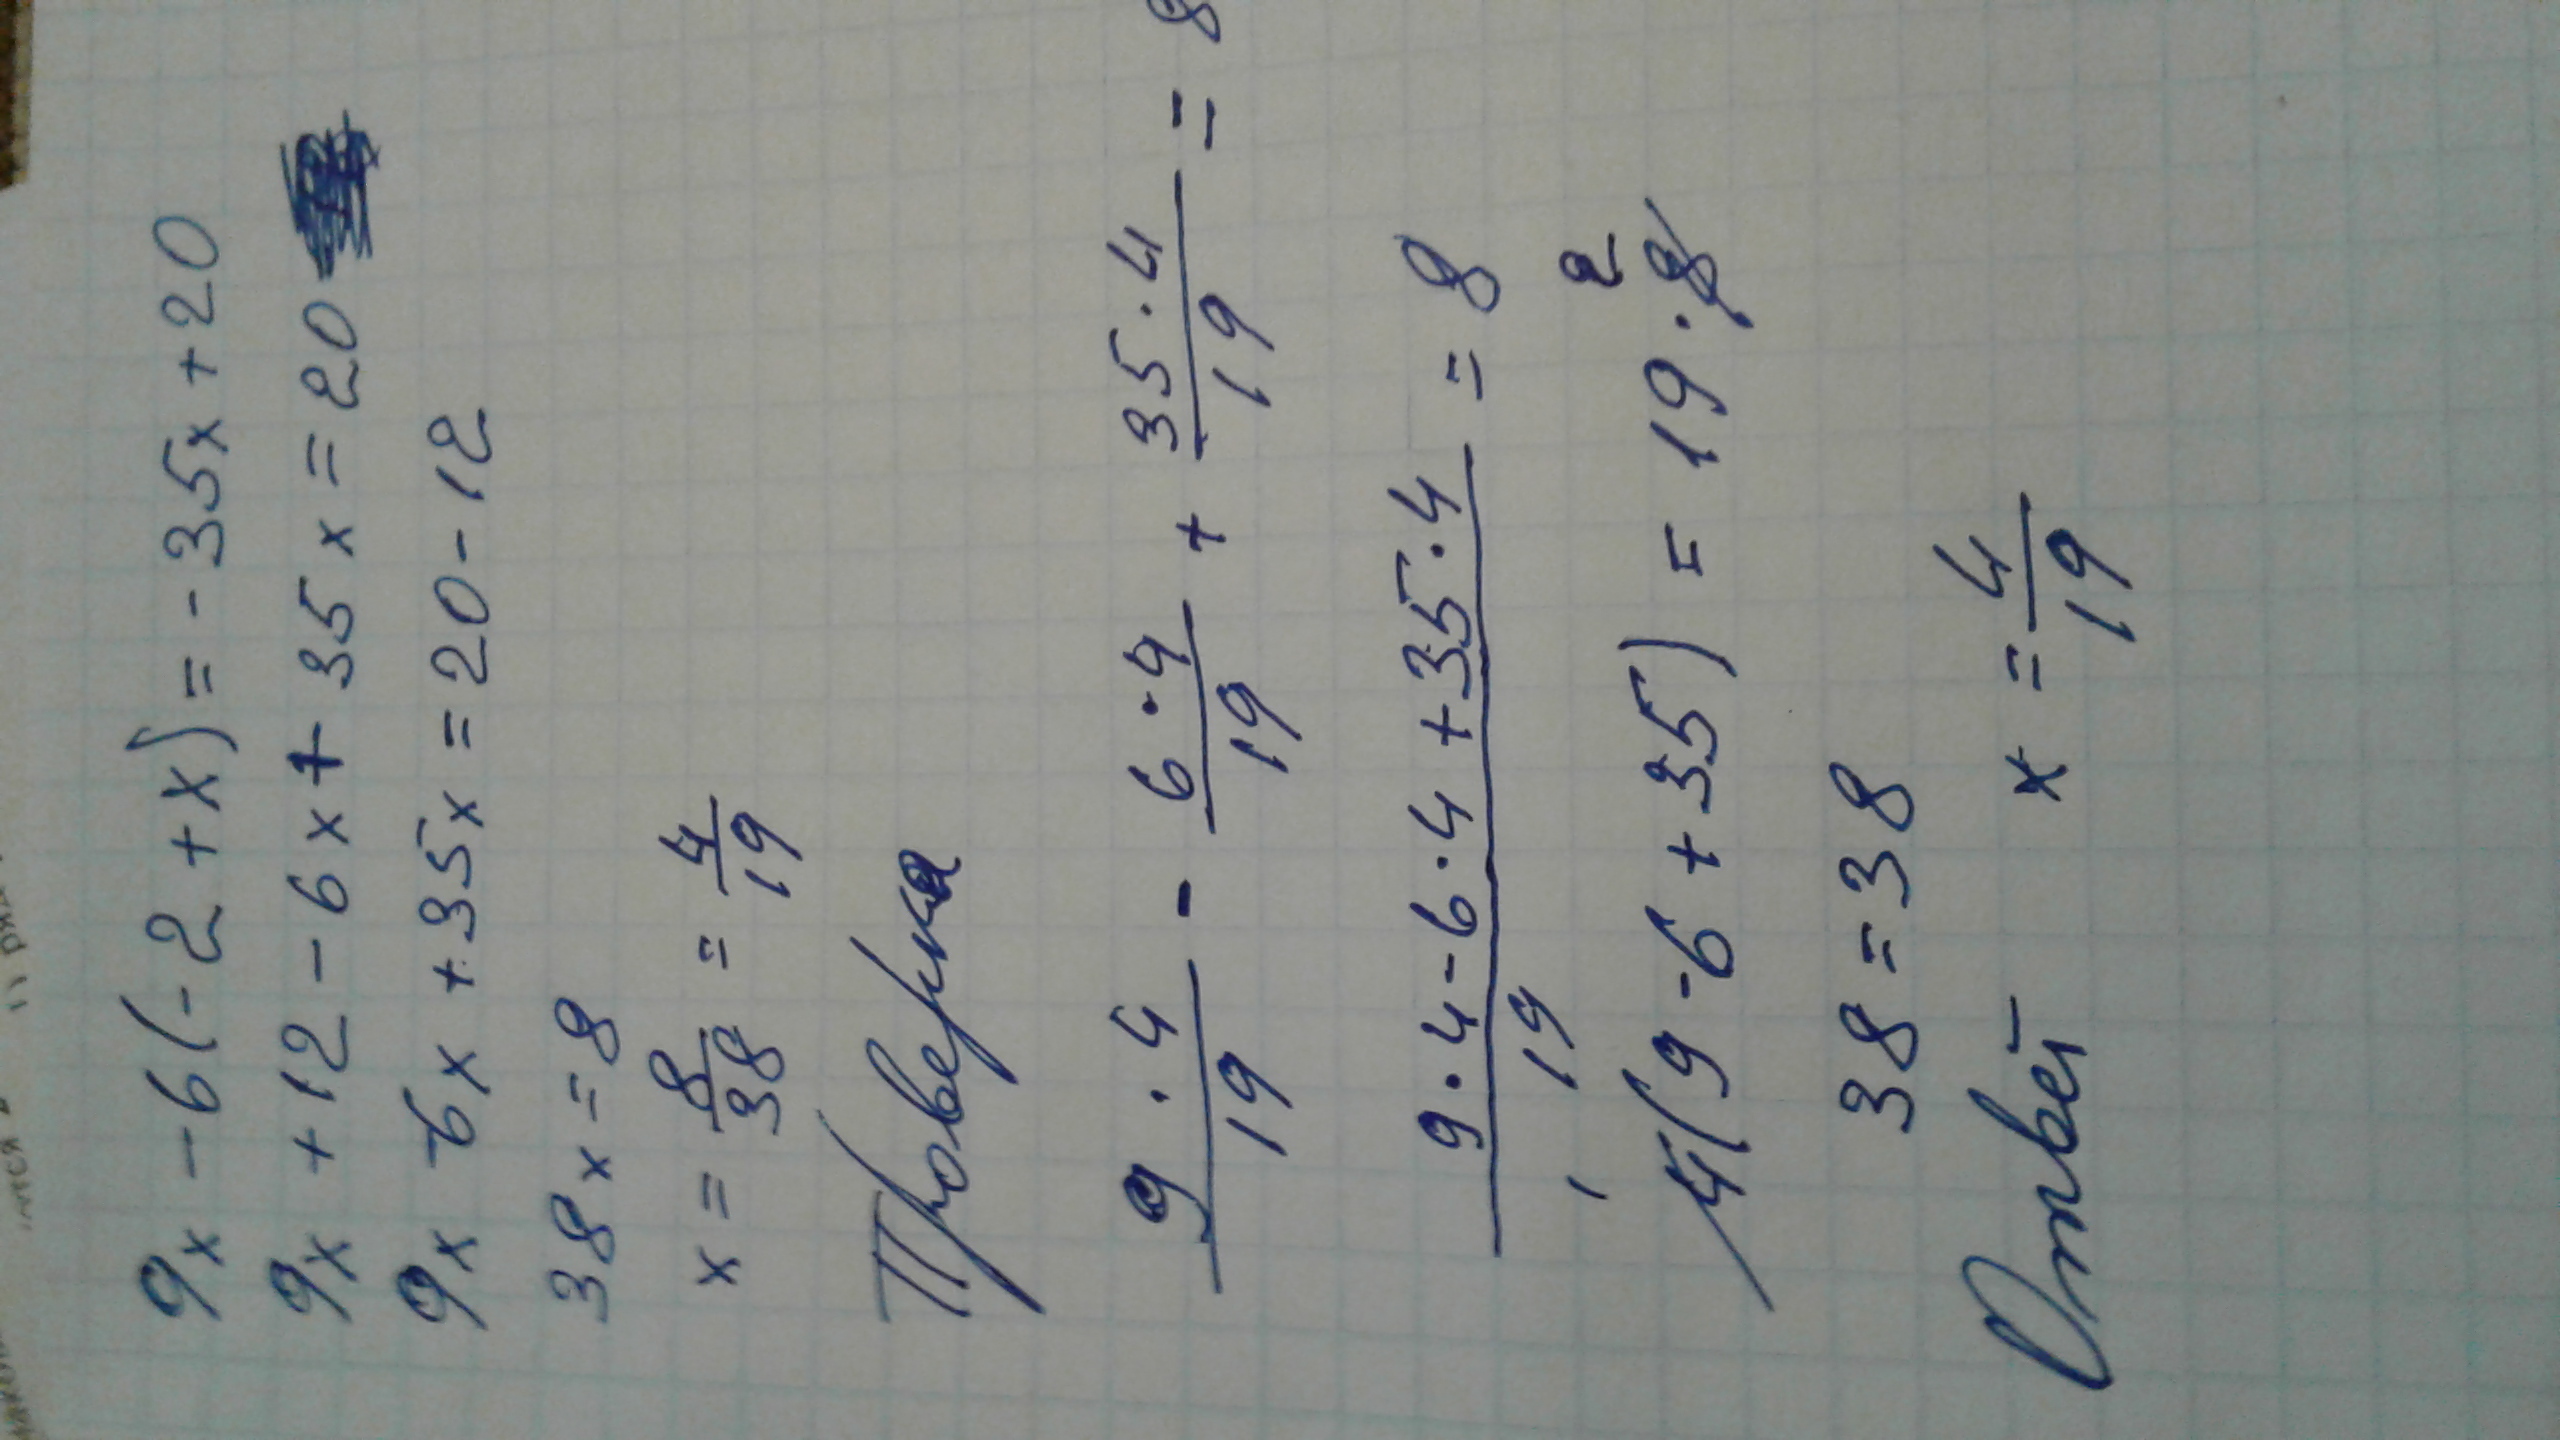 9x - 6(-2 + x) = -35x + 20
9x + 12 - 6x + 35x = 20
9x - 6x + 35x = 20 - 12
38x = 8
x = 8/38 = 4/19
Проверка
9 · 4/19 - 6 · 4/19 + 35 · 4/19 = 8
9 · 4 - 6 · 4 + 35 · 4/19 = 8
1 2
4(9 - 6 + 35) = 19 · 8
38 = 38
Ответ x = 4/19